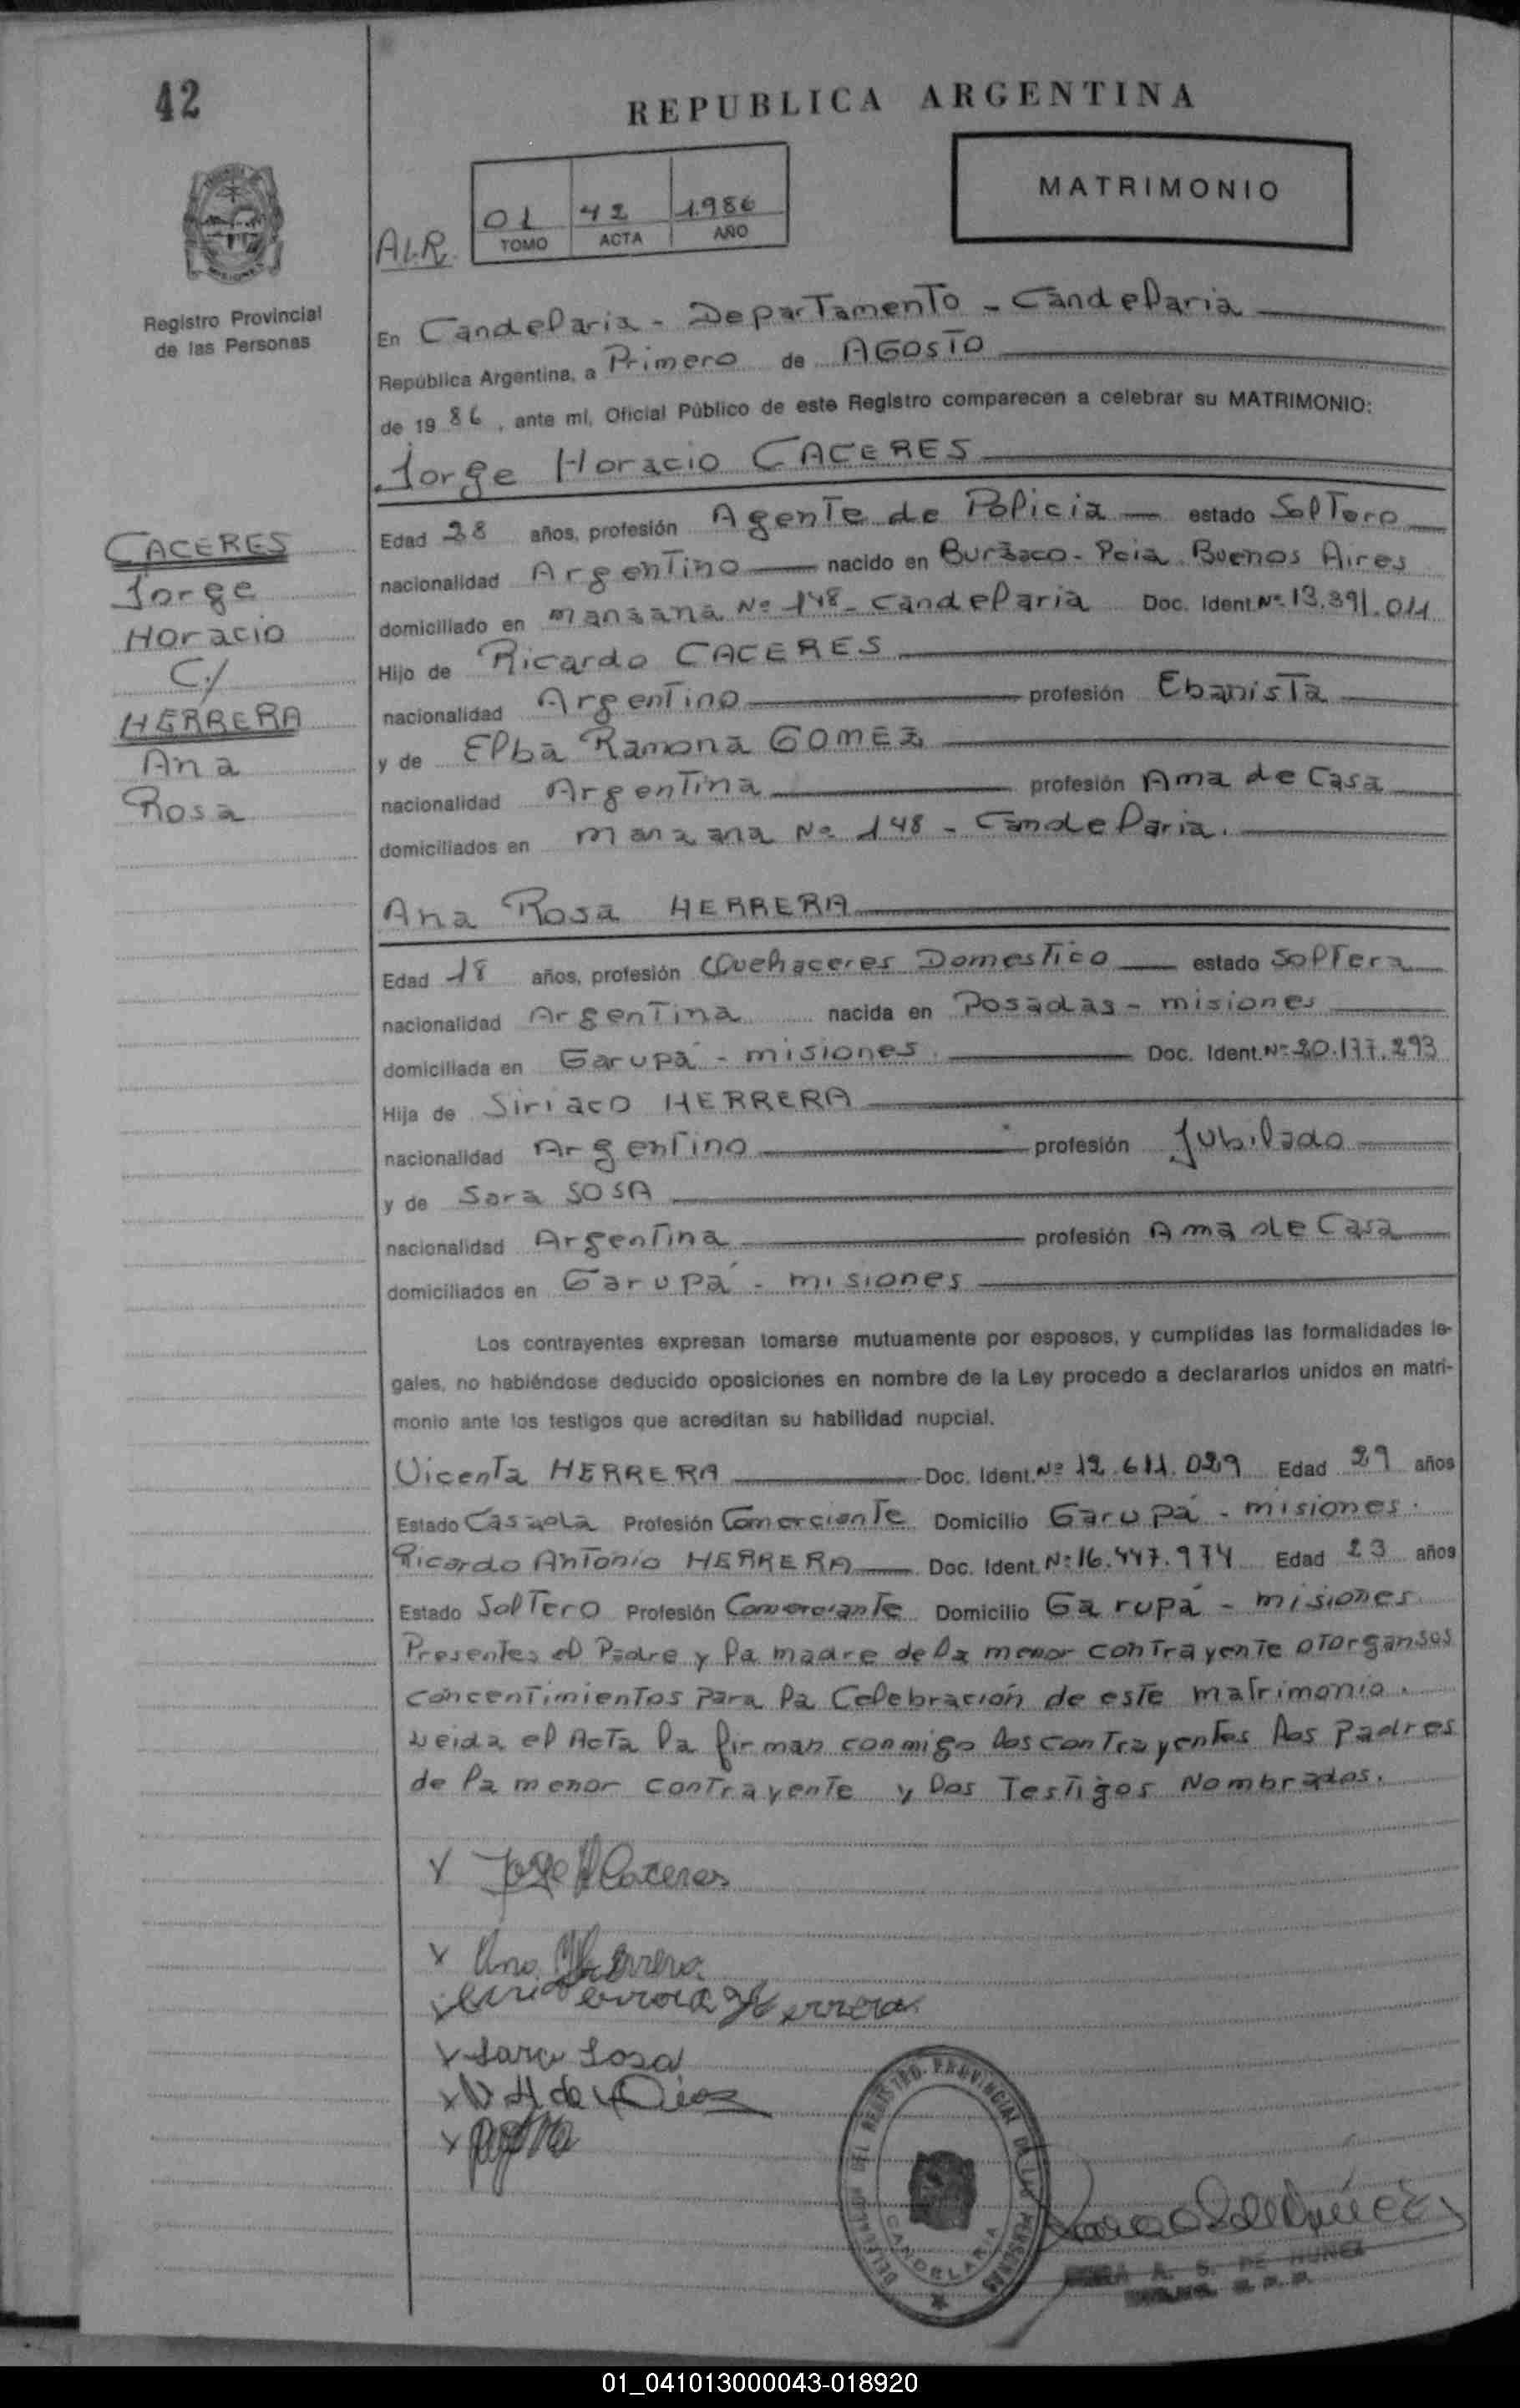 42
REPUBLICA ARGENTINA
MATRIMONIO
01 42 1.986
TOMO ACTA AÑO
A.L.R.
Registro Provincial
de las Personas
En Candelaria - Departamento - Candelaria
República Argentina, a Primero de AGosTo
de 1986, ante mí, Oficial Público de este Registro comparecen a celebrar su MATRIMONIO:
Jorge Horacio CACERES
CACERES
Jorge
Horacio
C/
HERRERA
Ana
Rosa
Edad 28 años, profesión Agente de Policia estado Soltero
nacionalidad Argentino nacido en Burzaco - Pcia. Buenos Aires
domiciliado en manzana Nº 148 - Candelaria Doc. Ident. Nº 13.391.011
Hijo de Ricardo CACERES
nacionalidad Argentino profesión Ebanista
y de Elba Ramona GOMEZ
nacionalidad Argentina profesión Ama de Casa
domiciliados en manzana Nº 148 - Candelaria.
Ana Rosa HERRERA
Edad 18 años, profesión Quehaceres Domestico estado Soltera
nacionalidad Argentina nacida en Posadas - misiones
domiciliada en Garupá - misiones. Doc. Ident. Nº 20.177.293
Hija de Siriaco HERRERA
nacionalidad Argentino profesión Jubilado
y de Sara SOSA
nacionalidad Argentina profesión Ama de Casa
domiciliados en Garupá - misiones
Los contrayentes expresan tomarse mutuamente por esposos, y cumplidas las formalidades le-
gales, no habiéndose deducido oposiciones en nombre de la Ley procedo a declararlos unidos en matri-
monio ante los testigos que acreditan su habilidad nupcial.
Vicenta HERRERA Doc. Ident. Nº 12.611.029 Edad 29 años
Estado Casada Profesión Comerciante Domicilio Garupá - misiones.
Ricardo Antonio HERRERA Doc. Ident. Nº 16.447.974 Edad 23 años
Estado Soltero Profesión Comerciante Domicilio Garupá - misiones.
Presentes el Padre y la madre de la menor contrayente otorgan sus
concentimientos para la Celebración de este matrimonio.
Leida el Acta la firman conmigo los contrayentes los padres
de la menor contrayente y los Testigos Nombrados.
x Jorge H Caceres
x Ana Herrera
x Herrera
x Sara Sosa
x V H de Dios
x
DEL REGISTRO PROVINCIAL DE LAS PERSONAS
CANDELARIA
A. S. DE NUÑEZ
01_041013000043-018920